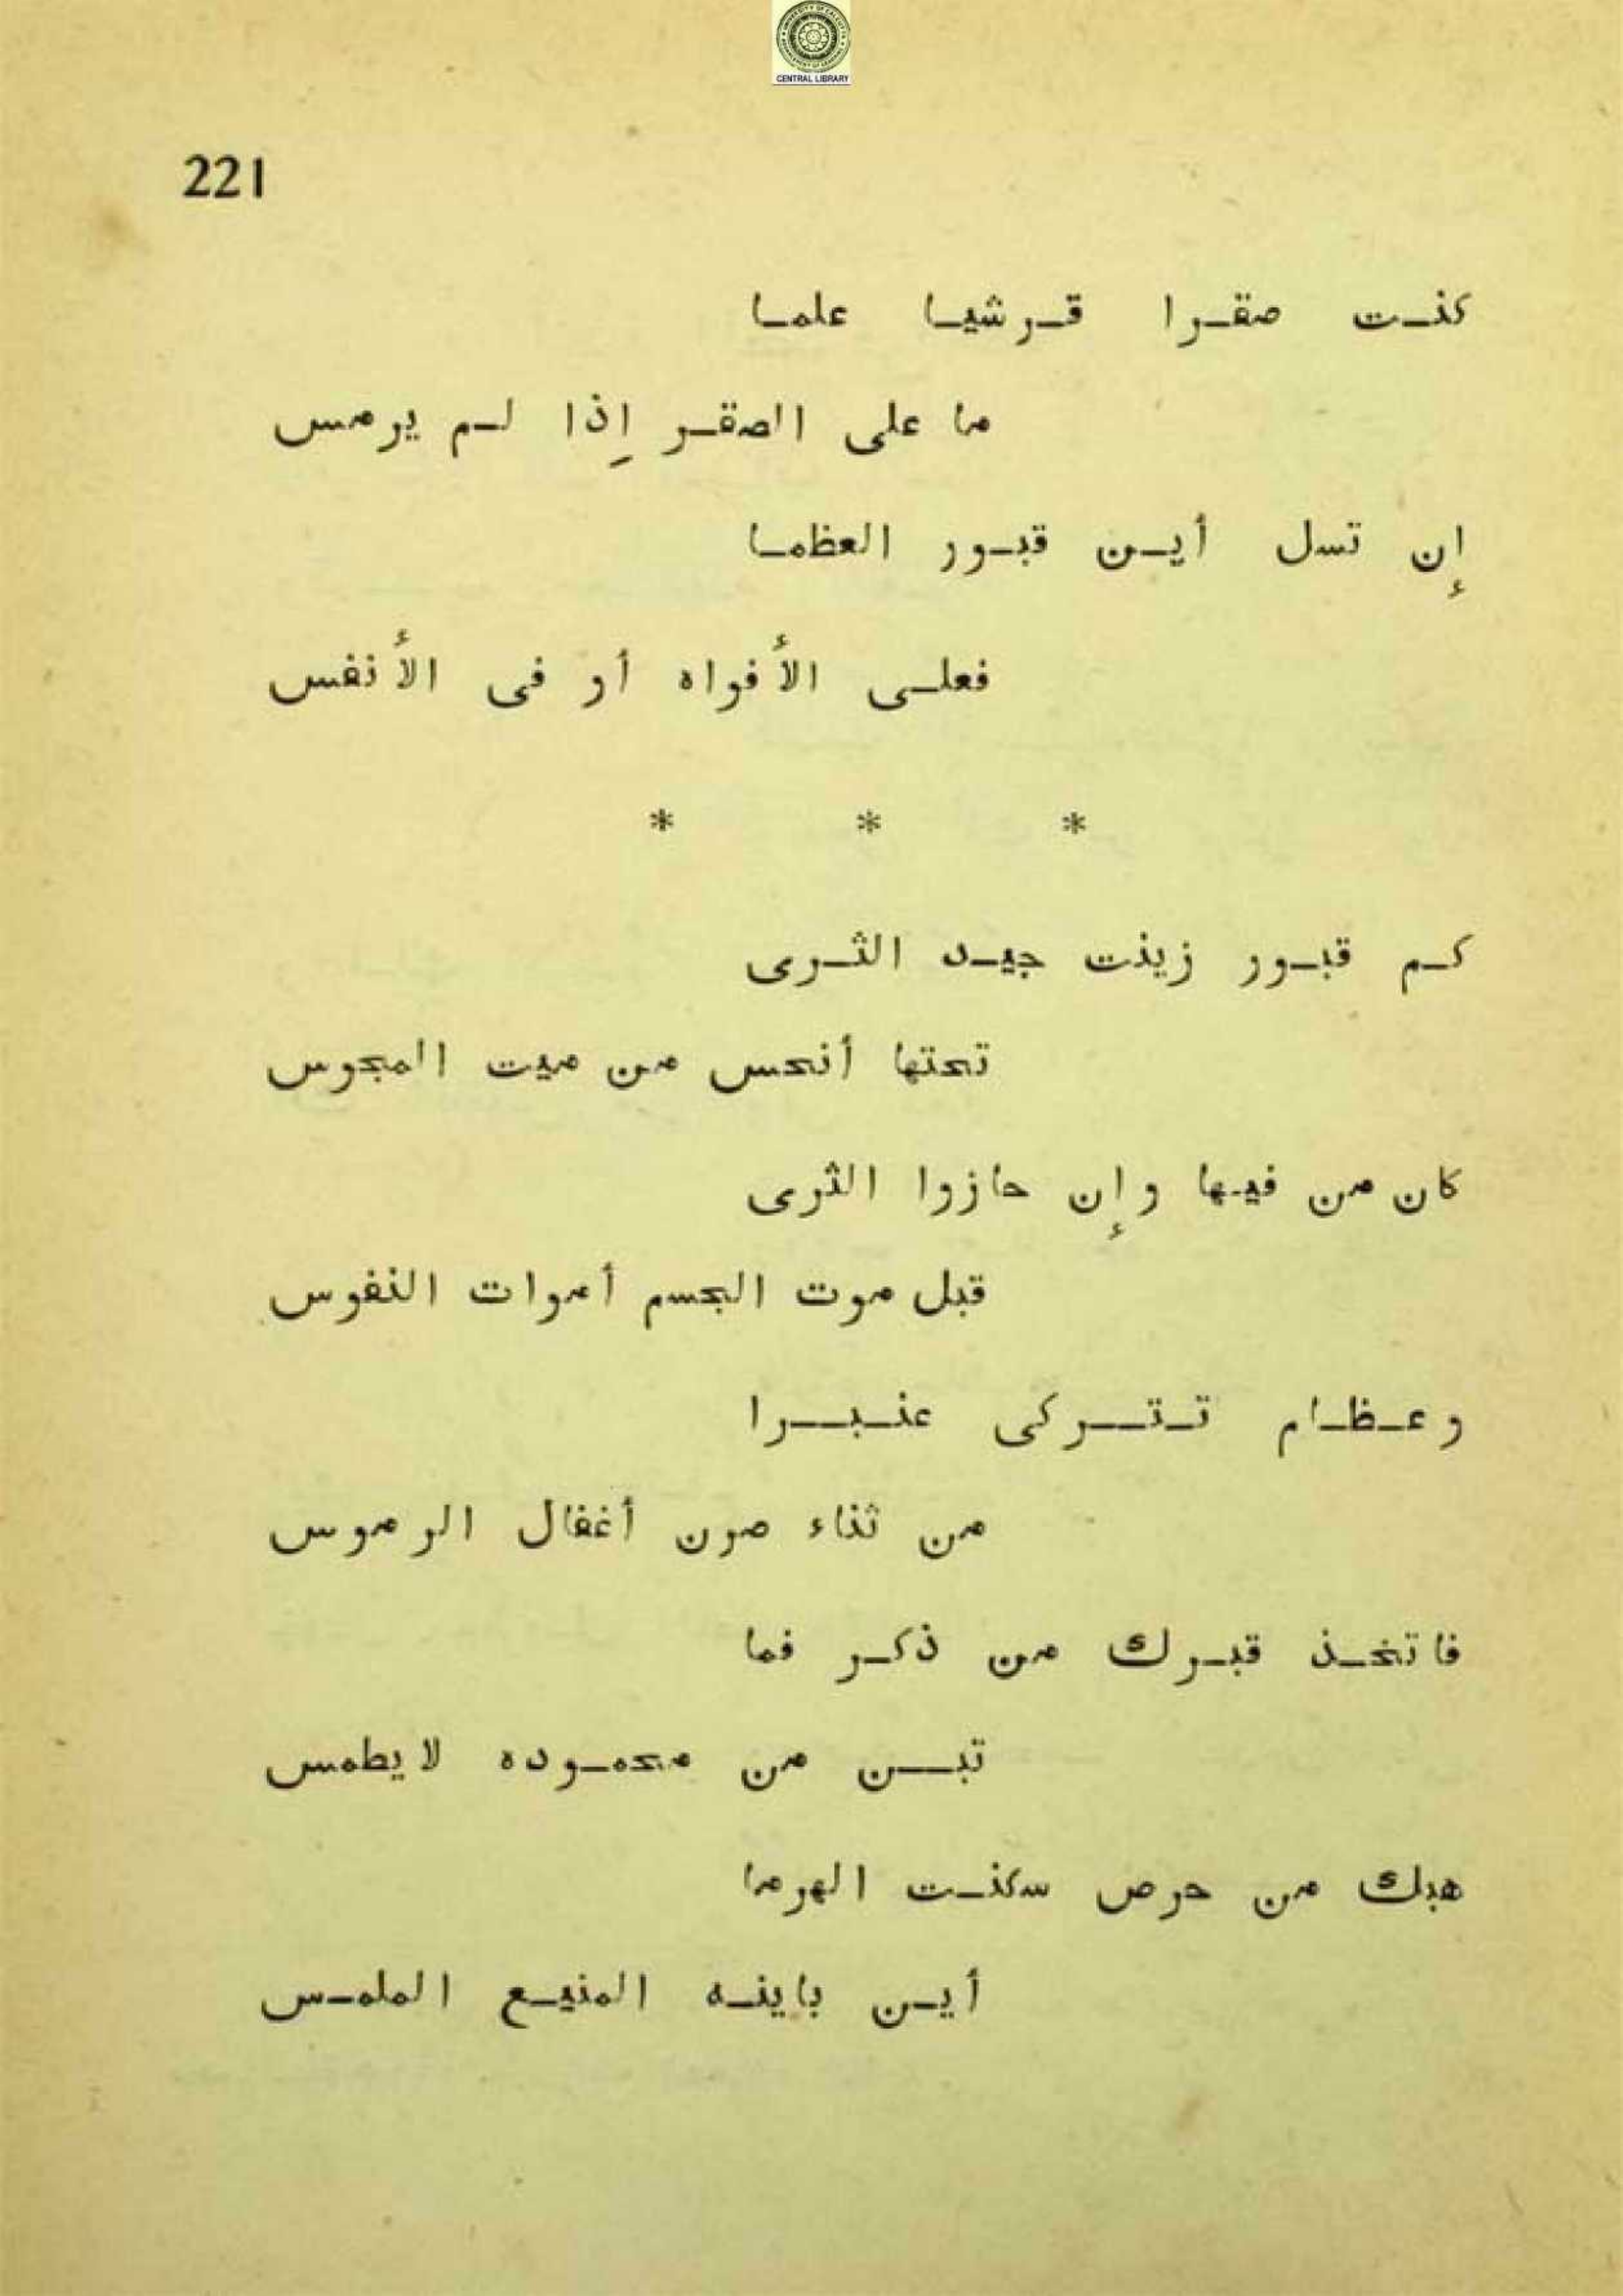 CENTRAL LIBRARY
221
كنت صقرا قرشيا علما
ما على الصقر إذا لم يرمس
إن تسل أين قبور العظما
فعلى الأفواه أو فى الأنفس
* * *
كم قبور زينت جيد الثرى
تحتها أنحس من ميت المجوس
كان من فيها وإن حازوا الثرى
قبل موت الجسم أموات النفوس
وعظام تتركى عنبرا
من ثناء صرن أغفال الرموس
فاتخذ قبرك من ذكر فما
تبن من محموده لا يطمس
هبك من حرص سكنت الهرما
أين باينه المنيع الملمس